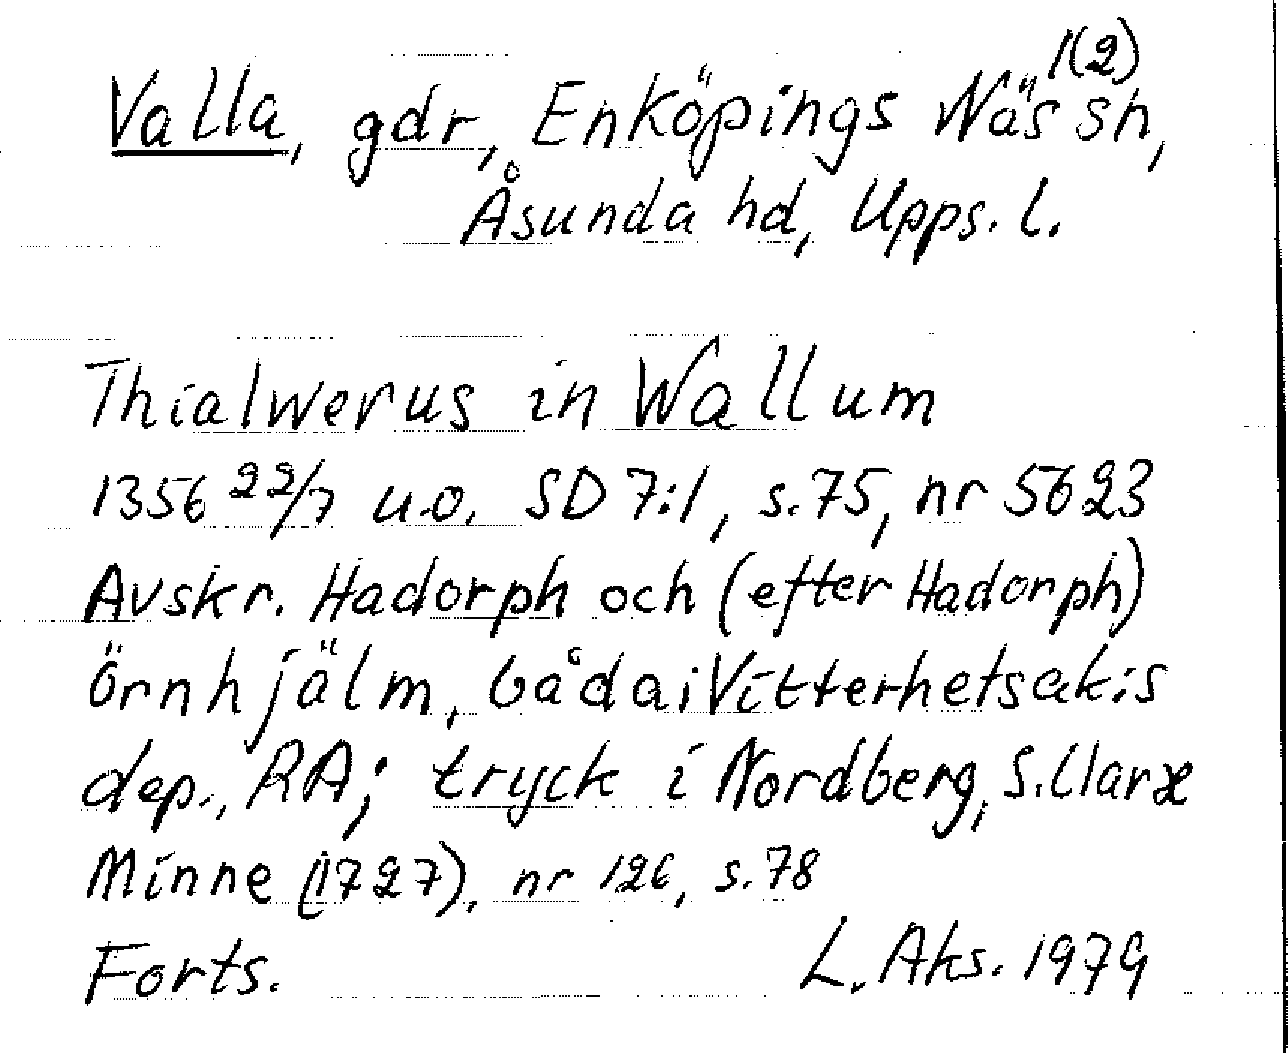 1(2)
Valla, gdr, Enköpings Näs sn,
Åsunda hd, Upps. l.
Thialwerus in Wallum
1356 22/7 u.o. SD 7:1, s. 75, nr 5623
Avskr. Hadorph och (efter Hadorph)
Örnhjälm, båda i Vitterhetsak:s
dep., RA; tryck i Nordberg, S. Claræ
Minne (1727), nr 126, s. 78
Forts. L. Aks. 1979